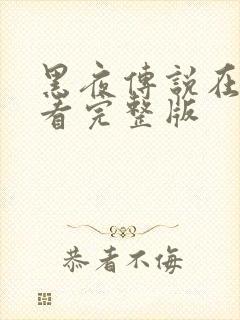 黑夜傳說在
看完整版
恭者不侮